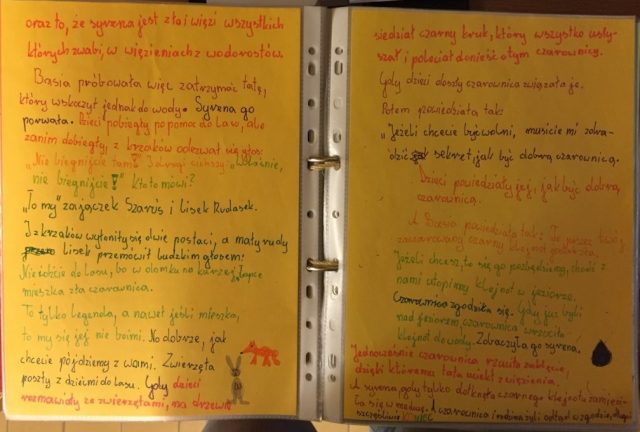 oraz to, że syrena jest zła i więzi wszystkich
których zwabi, w więzieniach z wodorostów.
Basia próbowała więc zatrzymać tatę,
który wskoczył jednak do wody. Syrena go
porwała. Dzieci pobiegły po pomoc do lasu, ale
zanim dobiegły, z krzaków odezwał się głos:
"Nie biegnijcie tam!" I drugi cichszy "Właśnie,
nie biegnijcie!" Kto to mówi?
"To my" zajączek Szaruś i lisek Rudasek.
I z krzaków wyłoniły się dwie postaci, a mały rudy
lisek przemówił ludzkim głosem:
Nie idźcie do lasu, bo w domku na kurzej łapce
mieszka zła czarownica.
To tylko legenda, a nawet jeśli mieszka,
to my się jej nie boimy. No dobrze, jak
chcecie pójdziemy z wami. Zwierzęta
poszły z dziećmi do lasu. Gdy dzieci
rozmawiały ze zwierzętami, na drzewie
siedział czarny kruk, który wszystko usły-
szał i poleciał donieść o tym czarownicy.
Gdy dzieci doszły czarownica związała je.
Potem powiedziała tak:
"Jeżeli chcecie być wolni, musicie mi zdra-
dzić sekret, jak być dobrą czarownicą.
Dzieci powiedziały jej, jak być dobrą
czarownicą.
A Basia powiedziała tak: To przez twój
zaczarowany czarny klejnot
Jeżeli chcesz, to się go pozbędziemy, chodź z
nami utopimy klejnot w jeziorze.
Czarownica zgodziła się. Gdy już byli
nad jeziorem, czarownica wrzuciła
klejnot do wody. Zobaczyła go syrena.
Jednocześnie czarownica rzuciła zaklęcie,
dzięki któremu tata uciekł z więzienia.
A syrena, gdy tylko dotknęła czarnego klejnotu zamieni-
ła się w meduzę. A czarownica i rodzina żyli odtąd w zgodzie, długo i
szczęśliwie. Koniec